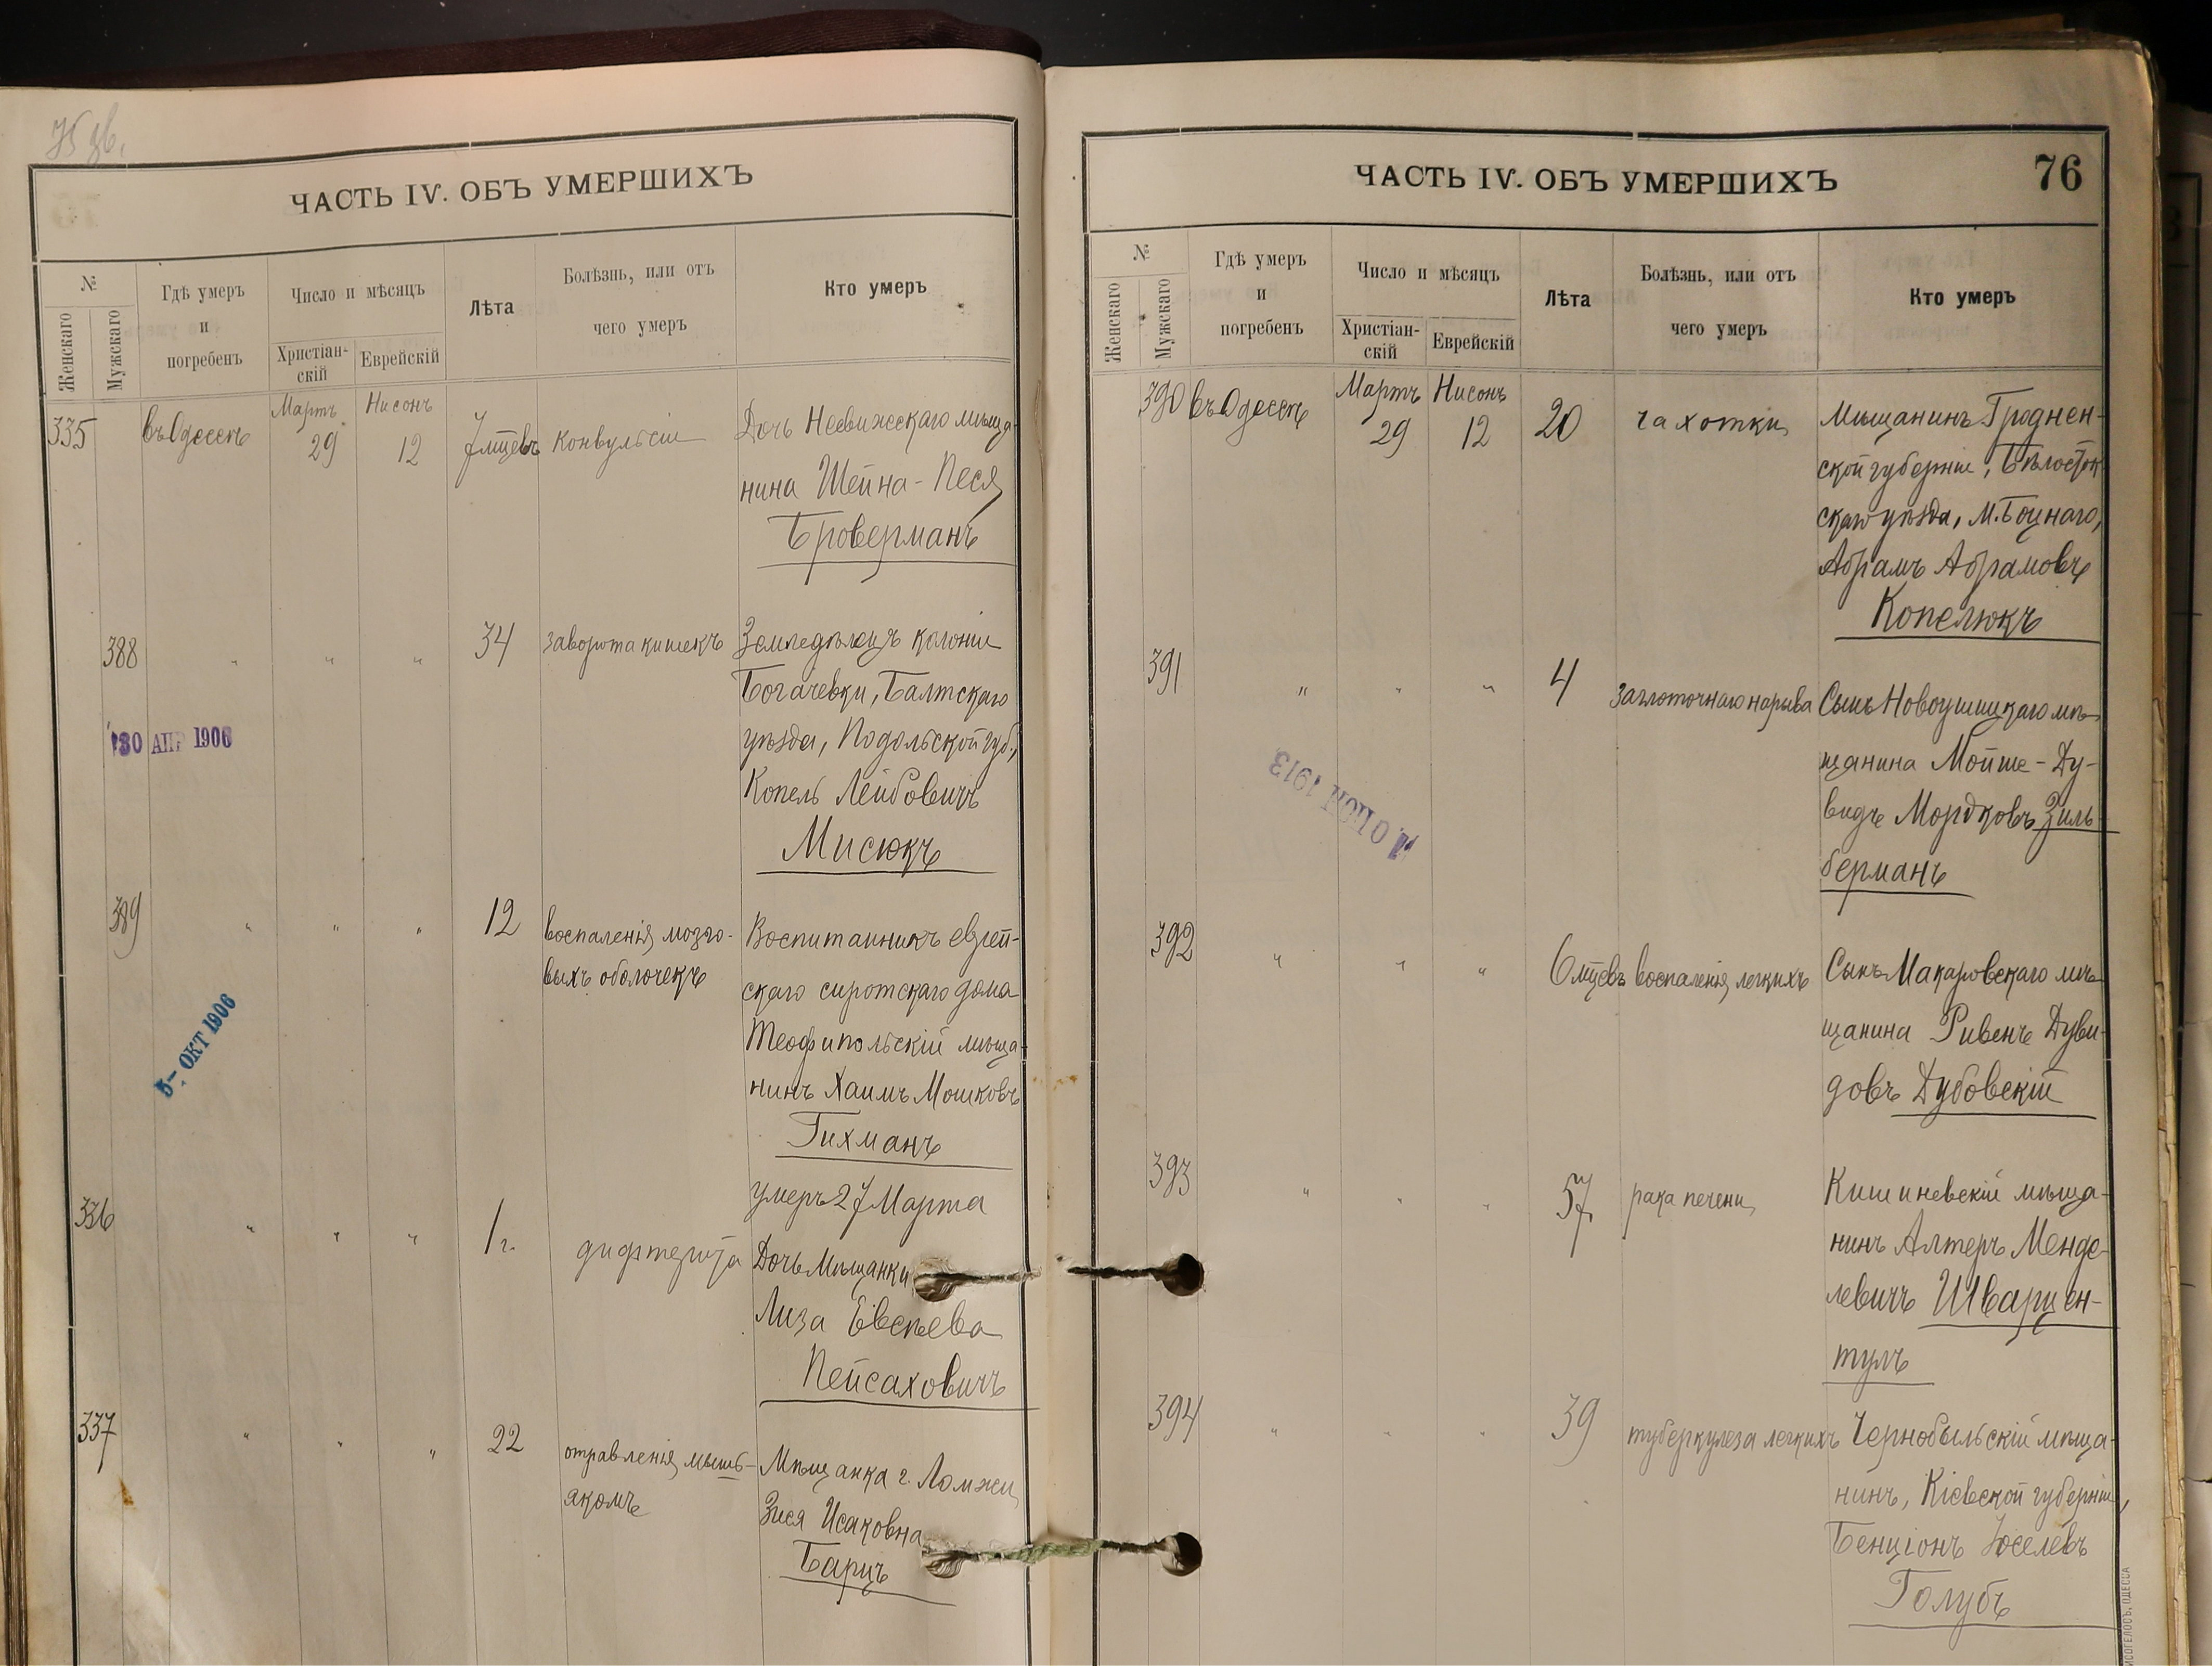 75 зв.
ЧАСТЬ IV. ОБЪ УМЕРШИХЪ
№
Женскаго
Мужскаго
Гдѣ умеръ
и
погребенъ
Число и мѣсяцъ
Христіан-
скій
Еврейскій
Лѣта
Болѣзнь, или отъ
чего умеръ
Кто умеръ
335 въ Одессѣ Мартъ 29 Нисонъ 12 7 мцевъ Конвульсіи Дочь Несвижскаго мѣща-
нина Шейна-Песя
Броверманъ
388 " " " 34 заворота кишекъ Земледѣлецъ колоніи
Богачевки, Балтскаго
уѣзда, Подольской губ.,
Копель Лейбовичъ
Мисюкъ
30 АПР 1906
389 " " " 12 воспаленія мозго-
выхъ оболочекъ
Воспитанникъ еврей-
скаго сиротскаго дома
Теофипольскій мѣща-
нинъ Хаимъ Мошковъ
Гихманъ
умеръ 27 Марта
5- ОКТ 1906
336 " " " 1 г. дифтерита Дочь Мѣщанки
Лиза Евсѣева
Пейсаховичъ
337 " " " 22 отравленія мышь-
якомъ
Мѣщанка г. Ломжи
Зися Исаковна
Барцъ
ЧАСТЬ IV. ОБЪ УМЕРШИХЪ
76
№
Женскаго
Мужскаго
Гдѣ умеръ
и
погребенъ
Число и мѣсяцъ
Христіан-
скій
Еврейскій
Лѣта
Болѣзнь, или отъ
чего умеръ
Кто умеръ
390 въ Одессѣ Мартъ 29 Нисонъ 12 20 чахотки Мѣщанинъ Гроднен-
ской губерніи, Бѣлосток-
скаго уѣзда, м.
Абрамъ Абрамовъ
Копелюкъ
391 " " " 4 заглоточнаго нарыва Сынъ Новоушицкаго мѣ-
щанина Мойше-Ду-
видъ Мордковъ Зиль-
берманъ
1913
392 " " " 6 мцевъ воспаленія легкихъ Сынъ Макаровскаго мѣ-
щанина Ривенъ Дуви-
довъ Дубовскій
393 " " " 57 рака печени Кишиневскій мѣща-
нинъ Алтеръ Менде-
левичъ Шварцен-
тулъ
394 " " " 39 туберкулеза легкихъ Чернобыльскій мѣща-
нинъ, Кіевской губерніи,
Бенціонъ Іоселевъ
Голубъ